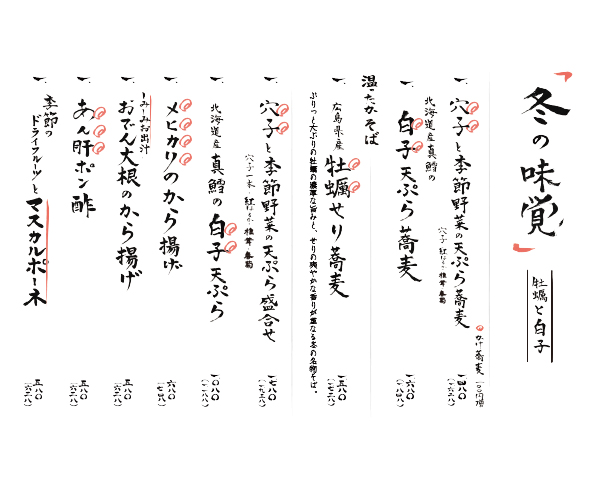 冬の味覚
牡蠣と白子
穴子と季節野菜の天ぷら蕎麦
穴子 紅はるか 椎茸 春菊
かけ蕎麦 一〇〇円増
一四八〇
(一六二八)
北海道産真鱈の
白子天ぷら蕎麦
一六八〇
温たかそば
広島県産
牡蠣せり蕎麦
ぷりっと大ぶりの牡蠣の濃厚な旨みと、せりの爽やかな香りが重なる冬の名物そば。
一五八〇
穴子と季節野菜の天ぷら盛合せ
穴子一本 紅はるか 椎茸 春菊
一七八〇
北海道産真鱈の白子天ぷら
一〇八〇
(一一八八)
メヒカリのから揚げ
六八〇
(七四八)
しみしみお出汁
おでん大根のから揚げ
五八〇
(六三八)
あん肝ポン酢
五八〇
(六三八)
季節の
ドライフルーツとマスカルポーネ
五八〇
(六三八)